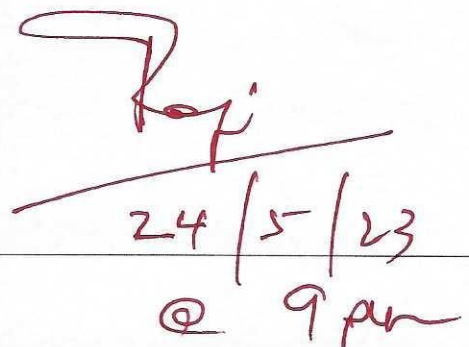 Roji
24/5/23
@ 9 pm